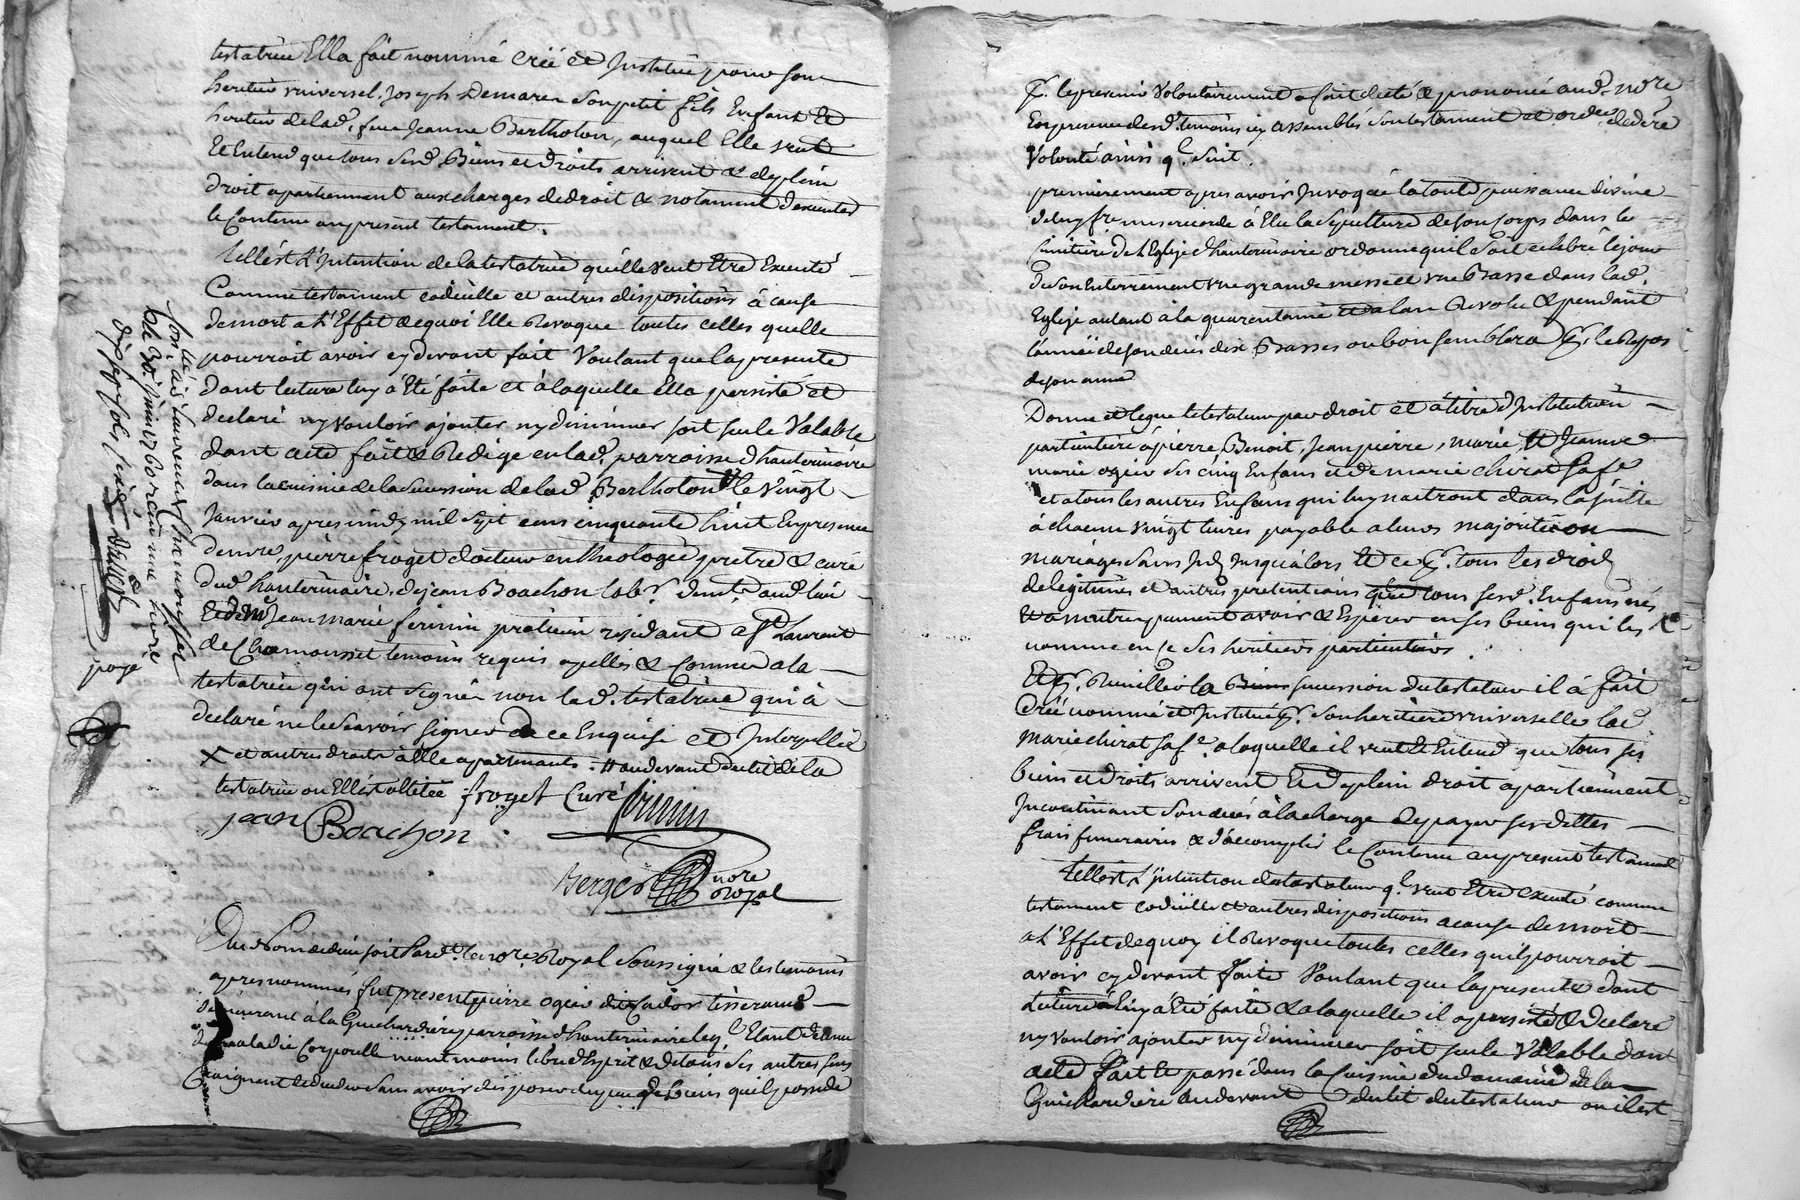 testatrice Ella fait nommé créé et Justitué pour son
heritier vniversel Joseph Demaren son petit fils Enfant et
heritier de lad. feue Jeanne Bertholon, auquel Elle veut
Et Entend que tous sesd. Biens et droits arrivent & de plein
droit apartiennent aux charges de droit & notament d'executer
le Contenu au present testament.
telle est L'Jntention de la testatrice qu'elle veut Etre Executé
Comme testament codicille et autres dispositions à cause
de mort a L'Effet de quoi Elle Revoque toutes celles quelle
pourroit avoir cy devant fait Voulant que la presente
dont lecture luy a Eté faite et à laquelle Ella persisté et
declaré ny vouloir ajouter ny diminuer soit seule Valable
dont acte fait & Redigé en lad. parroisse d'hauterivoire
dans la cuisine de la succession de lad. Bertholon le vingt
Janvier apres midy mil sept cens cinquante huit En presence
de mre pierre froget docteur en theologie pretre & curé
dud. hauterivoire, de jean Boachon lab.r dem.t aud. lieu
Et de Me Jean marie ferimin praticien residant a St Laurent
de Chamousset temoins requis apellés & Connus a la
testatrice qui ont signé non la d. testatrice qui à
declaré ne le savoir signer de ce Enquise et Jnterpellée
X et autres droits à Elle apartenants. # au devant du lit de la
testatrice ou Ell'est allitée froget Curé ferimin
jean Boachon
Berger nore
Royal
Au Nom de dieu soit Pard.t le nore Royal soussigné & les temoins
apres nommés fut present pierre ogier dit Cador tisserand
demeurant à la Guichardiere parroisse d'hauterivoire leq.l Etant detenu
de maladie Corporelle neantmoins libre d'Esprit & de tous ses autres sens
Craignant de deceder sans avoir disposé du peu de Biens quil possede
Con.lé à St Laurent de Chamousset
le 30 janvier 1760 reçu une livre
dix sept sols six d.
page
p.r le present Volontairement a fait dicté & prononcé aud. nore
En presence desd. temoins icy assemblés son testament et ordre. de dere
Volonté ainsi q.l suit.
premierement apres avoir Jnvoqué la toute puissance divine
de luy f.re misericorde à Elu la sepulture de son corps dans le
Cimitiere de L'Eglise d'hauterivoire ordonne quil soit celebré le jour
de son Enterrement vne grande messe et vne Basse dans lad.
Eglise autant à la quarantaine et a lan Revolu & pendant
l'année de son decès dix Basses ou bon semblera p.r le Repos
de son ame
Donne et legue le testateur par droit et à titre d'Jnstitution
particuliere à pierre, Benoit, Jean pierre, marie, et Jeanne
marie ogier ses cinq Enfans et de marie chirat sa fe
et a tous les autres Enfans qui luy naitront dans la suitte
à chacun vingt livres payable a leurs majorité ou
mariages sans Jnt. jusqu'alors Et ce p.r tous les droits
de legitimes et autres pretentions que tous sesd. Enfans nés
Et a naitre peuvent avoir & Esperer en ses biens qui les
nomme en ce ses heritiers particuliers.
Et p.r Recueillir la Biens succession du testateur il à fait
Créé nommé et Justitué p.r son heritiere vniverselle lad.
marie chirat sa fe. a laquelle il veut & Entend que tous ses
biens et droits arrivent Et de plein droit apartiennent
Jncontinant son decés à la charge de payer ses dettes
frais funeraires & d'accomplir le Contenu au present testament
telle est L'Jntention du testateur q.l veut Etre Executé comme
testament codicille et autres dispositions a cause de mort
a L'Effet de quoy il Revoque toutes celles quil pourroit
avoir cy devant faite Voulant que la presente dont
lecture luy à Eté faite & a laquelle il a persisté & declaré
ny vouloir ajouter ny diminuer soit seule Valable dont
acte fait Et passé dans la Cuisine du domaine de la
Guichardiere au devant du lit du testateur ou il est